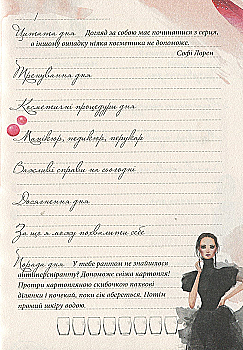 Цитата дня Догляд за собою має починатися з серця,
в іншому випадку ніяка косметика не допоможе.
Софі Лорен
Тренування дня
Косметичні процедури дня
Манікюр, педикюр, перукар
Важливі справи на сьогодні
Досягнення дня
За що я можу похвалити себе
Порада дня У тебе раптом не знайшлося
антиперспіранту? Допоможе свіжа картопля!
Протри картопляною скибочкою пахвові
ділянки і почекай, поки сік вбереться. Потім
пряний шкіру водою.